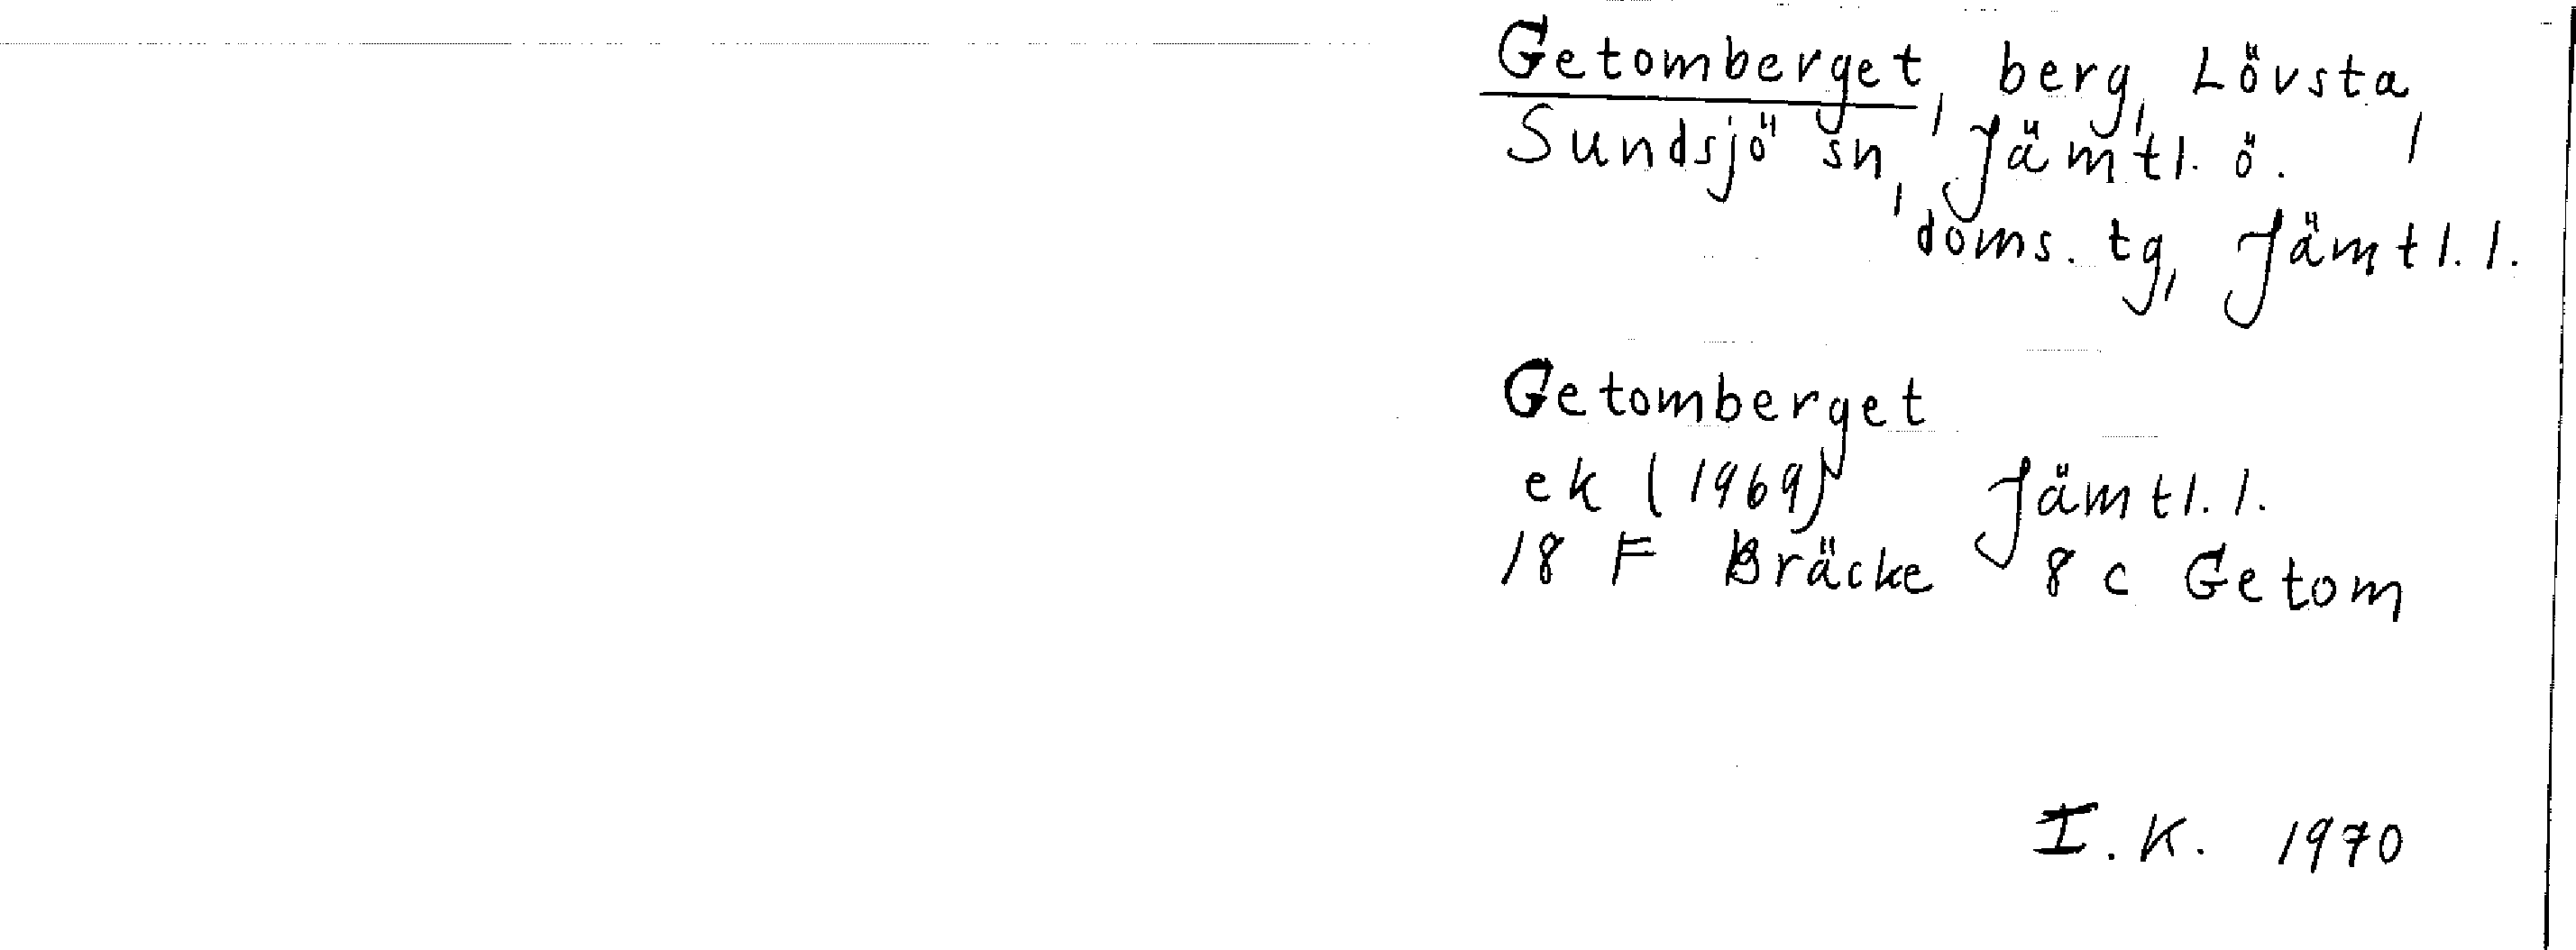 Getomberget, berg, Lövsta,
Sundsjö sn, Jämtl. ö.
doms. tg, Jämtl. l.
Getomberget
ek (1969) Jämtl. l.
18 F Bräcke 8 c Getom
I. K. 1970